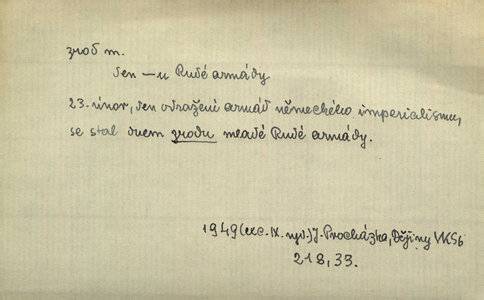 zrod m.
den – u Rudé armády
23. únor, den odražení armád německého imperialismu,
se stal dnem zrodu mladé Rudé armády.
1949 (exc. IX. vyd.) J. Procházka, Dějiny VKSb
218, 33.